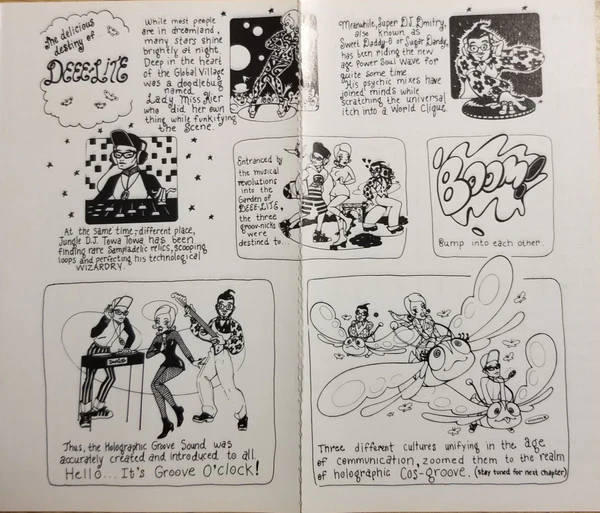 The delicious
destiny of
DEEE-LITE
While most people
are in dreamland,
many stars shine
brightly at night.
Deep in the heart
of the Global Village
was a doodlebug
named
Lady Miss Kier
who did her own
thing while funkifying
the scene.
Meanwhile, Super DJ Dmitry,
also known as
Sweet Daddy-O or Sugar Dandy,
has been riding the new
age Power Soul Wave for
quite some time
His psychic mixes have
joined minds while
scratching the universal
itch into a World Clique.
At the same time, different place,
Jungle D.J. Towa Towa has been
finding rare Sampladelic relics, scooping
loops and perfecting his technological
WIZARDRY.
Entranced by
the musical
revolutions
into the
Garden of
DEEE-LITE,
the three
groov-nicks
were
destined to...
BOOM!
Bump into each other.
Thus, the Holographic Groove Sound was
accurately created and introduced to all.
Hello... It's Groove O'clock!
Three different cultures unifying in the age
of communication, zoomed them to the realm
of holographic Cos-groove. (stay tuned for next chapter)